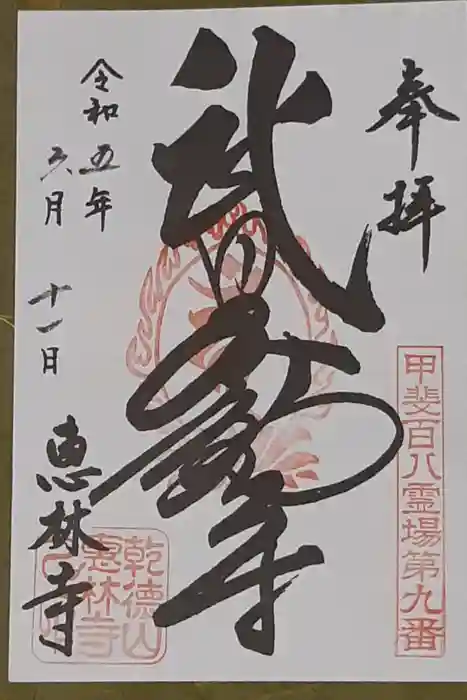 奉拝
甲斐百八霊場第九番
武田不動尊
令和五年
六月十一日
恵林寺
乾徳山
惠林寺